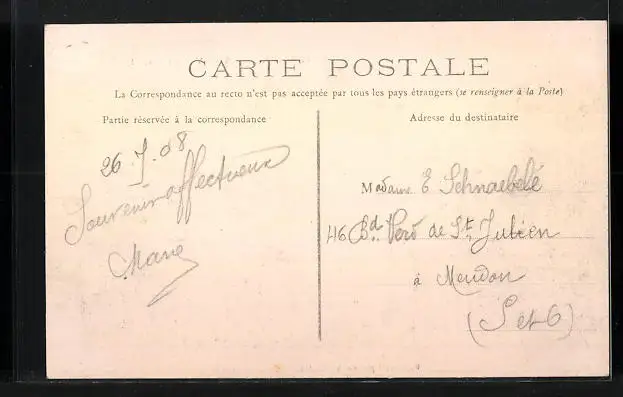 CARTE POSTALE
La Correspondance au recto n'est pas acceptée par tous les pays étrangers (se renseigner à la Poste)
Partie réservée à la correspondance
Adresse du destinataire
26 7 08
Souvenir affectueux
Marie
Madame E Schnaebelé
46 Bd Verd de St Julien
à Meudon
(S et O)